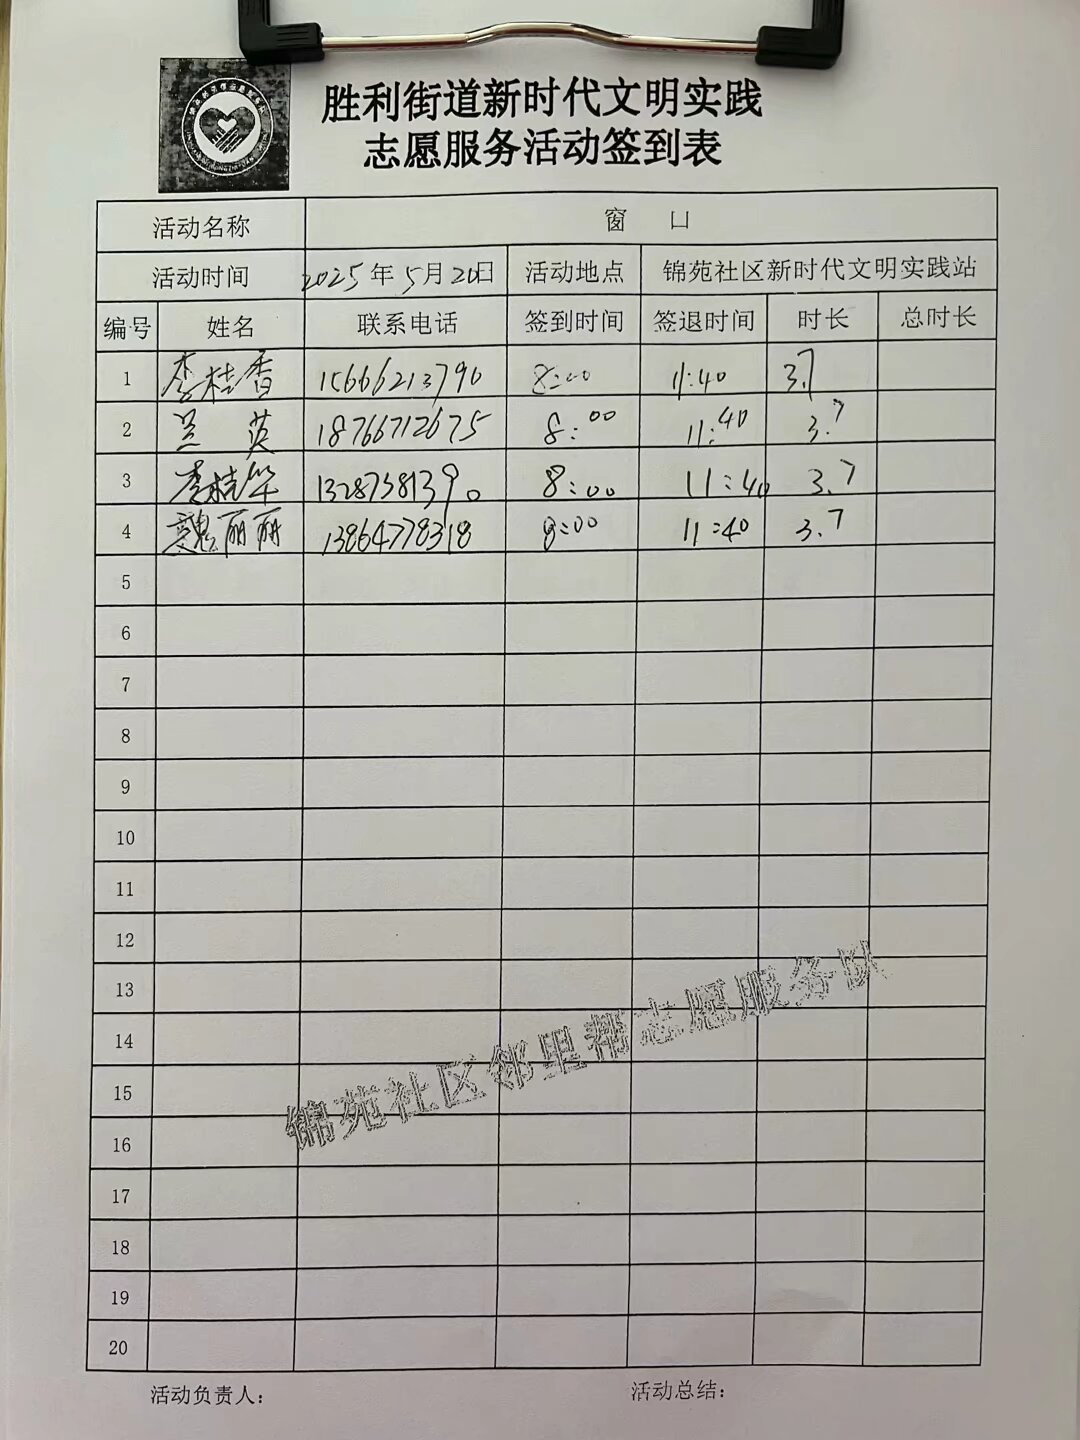 胜利街道新时代文明实践
志愿服务活动签到表
活动名称 窗 口
活动时间 2025年5月20日 活动地点 锦苑社区新时代文明实践站
编号 姓名 联系电话 签到时间 签退时间 时长 总时长
1 李桂香 15666213790 8:00 11:40 3.7
2 兰英 18766712675 8:00 11:40 3.7
3 李桂华 13287381390 8:00 11:40 3.7
4 魏丽丽 13864778318 8:00 11:40 3.7
5
6
7
8
9
10
11
12
13
14
15
16
17
18
19
20
锦苑社区邻里帮志愿服务队
活动负责人： 活动总结：